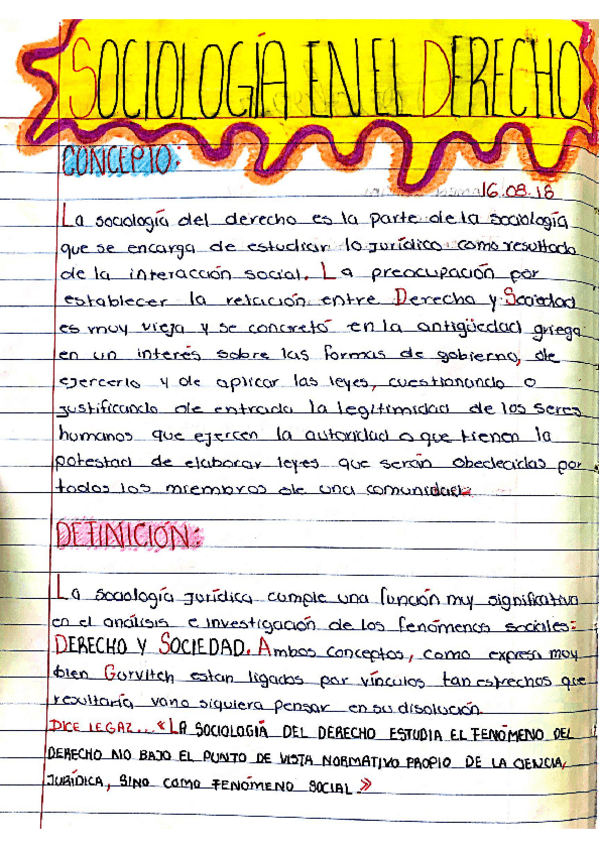 SOCIOLOGÍA EN EL DERECHO
CONCEPTO:
16.08.18
La sociología del derecho es la parte de la sociología
que se encarga de estudiar lo jurídico como resultado
de la interacción social. La preocupación por
establecer la relación entre Derecho y Sociedad
es muy vieja y se concretó en la antigüedad griega
en un interés sobre las formas de gobierno, de
ejercerlo y de aplicar las leyes, cuestionando o
justificando de entrada la legitimidad de los seres
humanos que ejercen la autoridad o que tienen la
potestad de elaborar leyes que serán obedecidas por
todos los miembros de una comunidad.
DEFINICIÓN:
La sociología jurídica cumple una función muy significativa
en el análisis e investigación de los fenómenos sociales:
DERECHO Y SOCIEDAD. Ambos conceptos, como expresa muy
bien Gorvitch estan ligados por vínculos tan estrechos que
resultaría vano siquiera pensar en su disolución.
DICE LEGAZ... «LA SOCIOLOGIA DEL DERECHO ESTUDIA EL FENÓMENO DEL
DERECHO NO BAJO EL PUNTO DE VISTA NORMATIVO PROPIO DE LA CIENCIA,
JURÍDICA, SINO COMO FENÓMENO SOCIAL.»